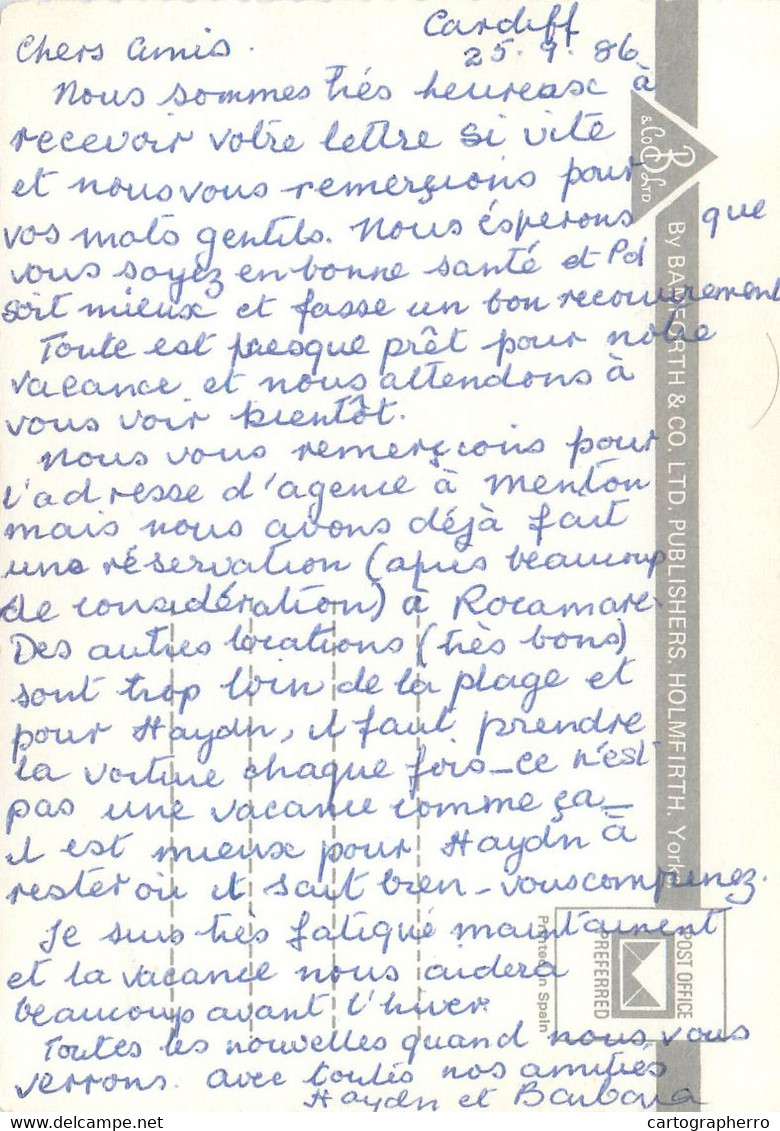 Cardiff
25.9.86
Chers Amis.
Nous sommes très heureax à
recevoir votre lettre si vite
et nous vous remerçions pour
vos mots gentils. Nous ésperons que
vous soyez en bonne santé et Pd
soit mieux et fasse un bon recouvrement
Toute est presque prêt pour notre
vacance et nous attendons à
vous voir bientôt.
Nous vous remerçcons pour
l'adresse d'agence à Menton
mais nous avons déjà fait
une réservation (après beaucoup
de considération) à Rocamare.
Des autres locations (très bons)
sont trop loin de la plage et
pour Haydn, il faut prendre
la voiture chaque fois – ce n'est
pas une vacance comme ça –
il est mieux pour Haydn à
rester où it sait bien – vous comprenez.
Je suis très fatigué maintainent
et la vacance nous aidera
beaucoup avant l'hiver.
Toutes les nouvelles quand nous vous
verrons. avec toutes nos amitiés
Haydn et Barbara
& Co B LTD
By BAMFORTH & CO. LTD. PUBLISHERS, HOLMFIRTH, Yorks.
Printed in Spain
POST OFFICE
PREFERRED
cartographerro